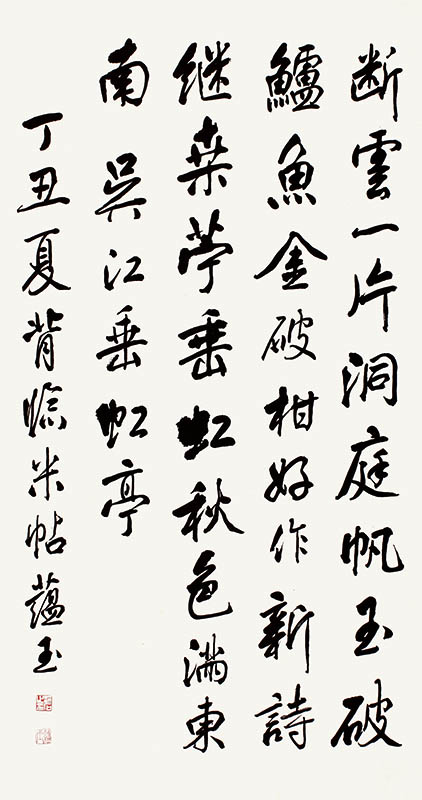 断雲一片洞庭帆玉破
鱸魚金破柑好作新詩
继桒苧垂虹秋色満東
南 吳江垂虹亭
丁丑夏背临米帖蕴玉